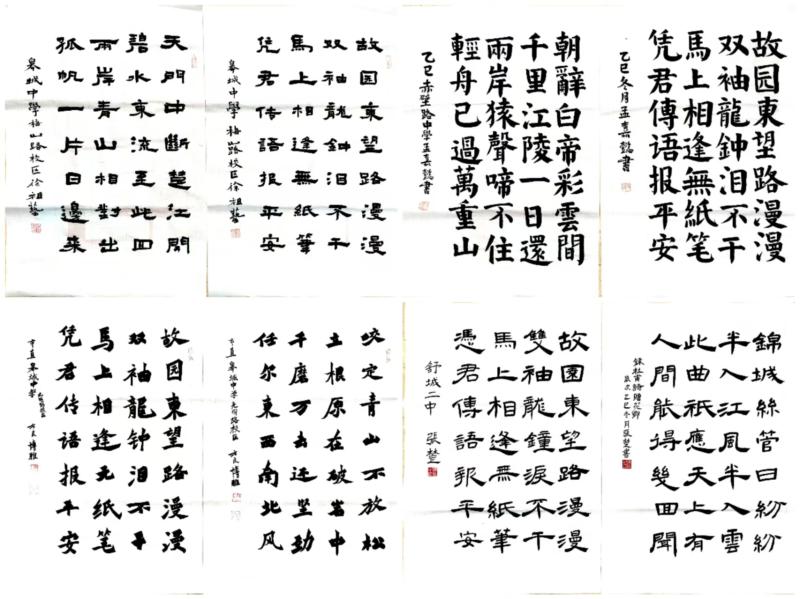 天門中斷楚江開
碧水東流至此回
兩岸青山相對出
孤帆一片日邊来
皋城中學梅山路校区徐祖
故园東望路漫漫
双袖龍鈡泪不干
馬上相逢無紙筆
凭君传語报平安
皋城中學梅山路校区徐祖
朝辭白帝彩雲間
千里江陵一日還
兩岸猿聲啼不住
輕舟已過萬重山
乙巳赤壁路中學孟嘉懿書
故园東望路漫漫
双袖龍鈡泪不干
馬上相逢無紙笔
凭君傳語报平安
乙巳冬月孟嘉懿書
故园東望路漫漫
双袖龍钟泪不干
馬上相逢无纸笔
凭君传语报平安
市直皋城中學
方良博雅
咬定青山不放松
土根原在破岩中
千磨万击还坚劲
任尔東西南北风
市直皋城中學校区
方良博雅
故園東望路漫漫
雙袖龍鐘淚不干
馬上相逢無紙筆
憑君傳語報平安
舒城二中 張楚
錦城絲管日紛紛
半入江風半入雲
此曲祇應天上有
人間能得幾回聞
錄杜甫詩贈花卿
歲次乙巳冬月張楚書